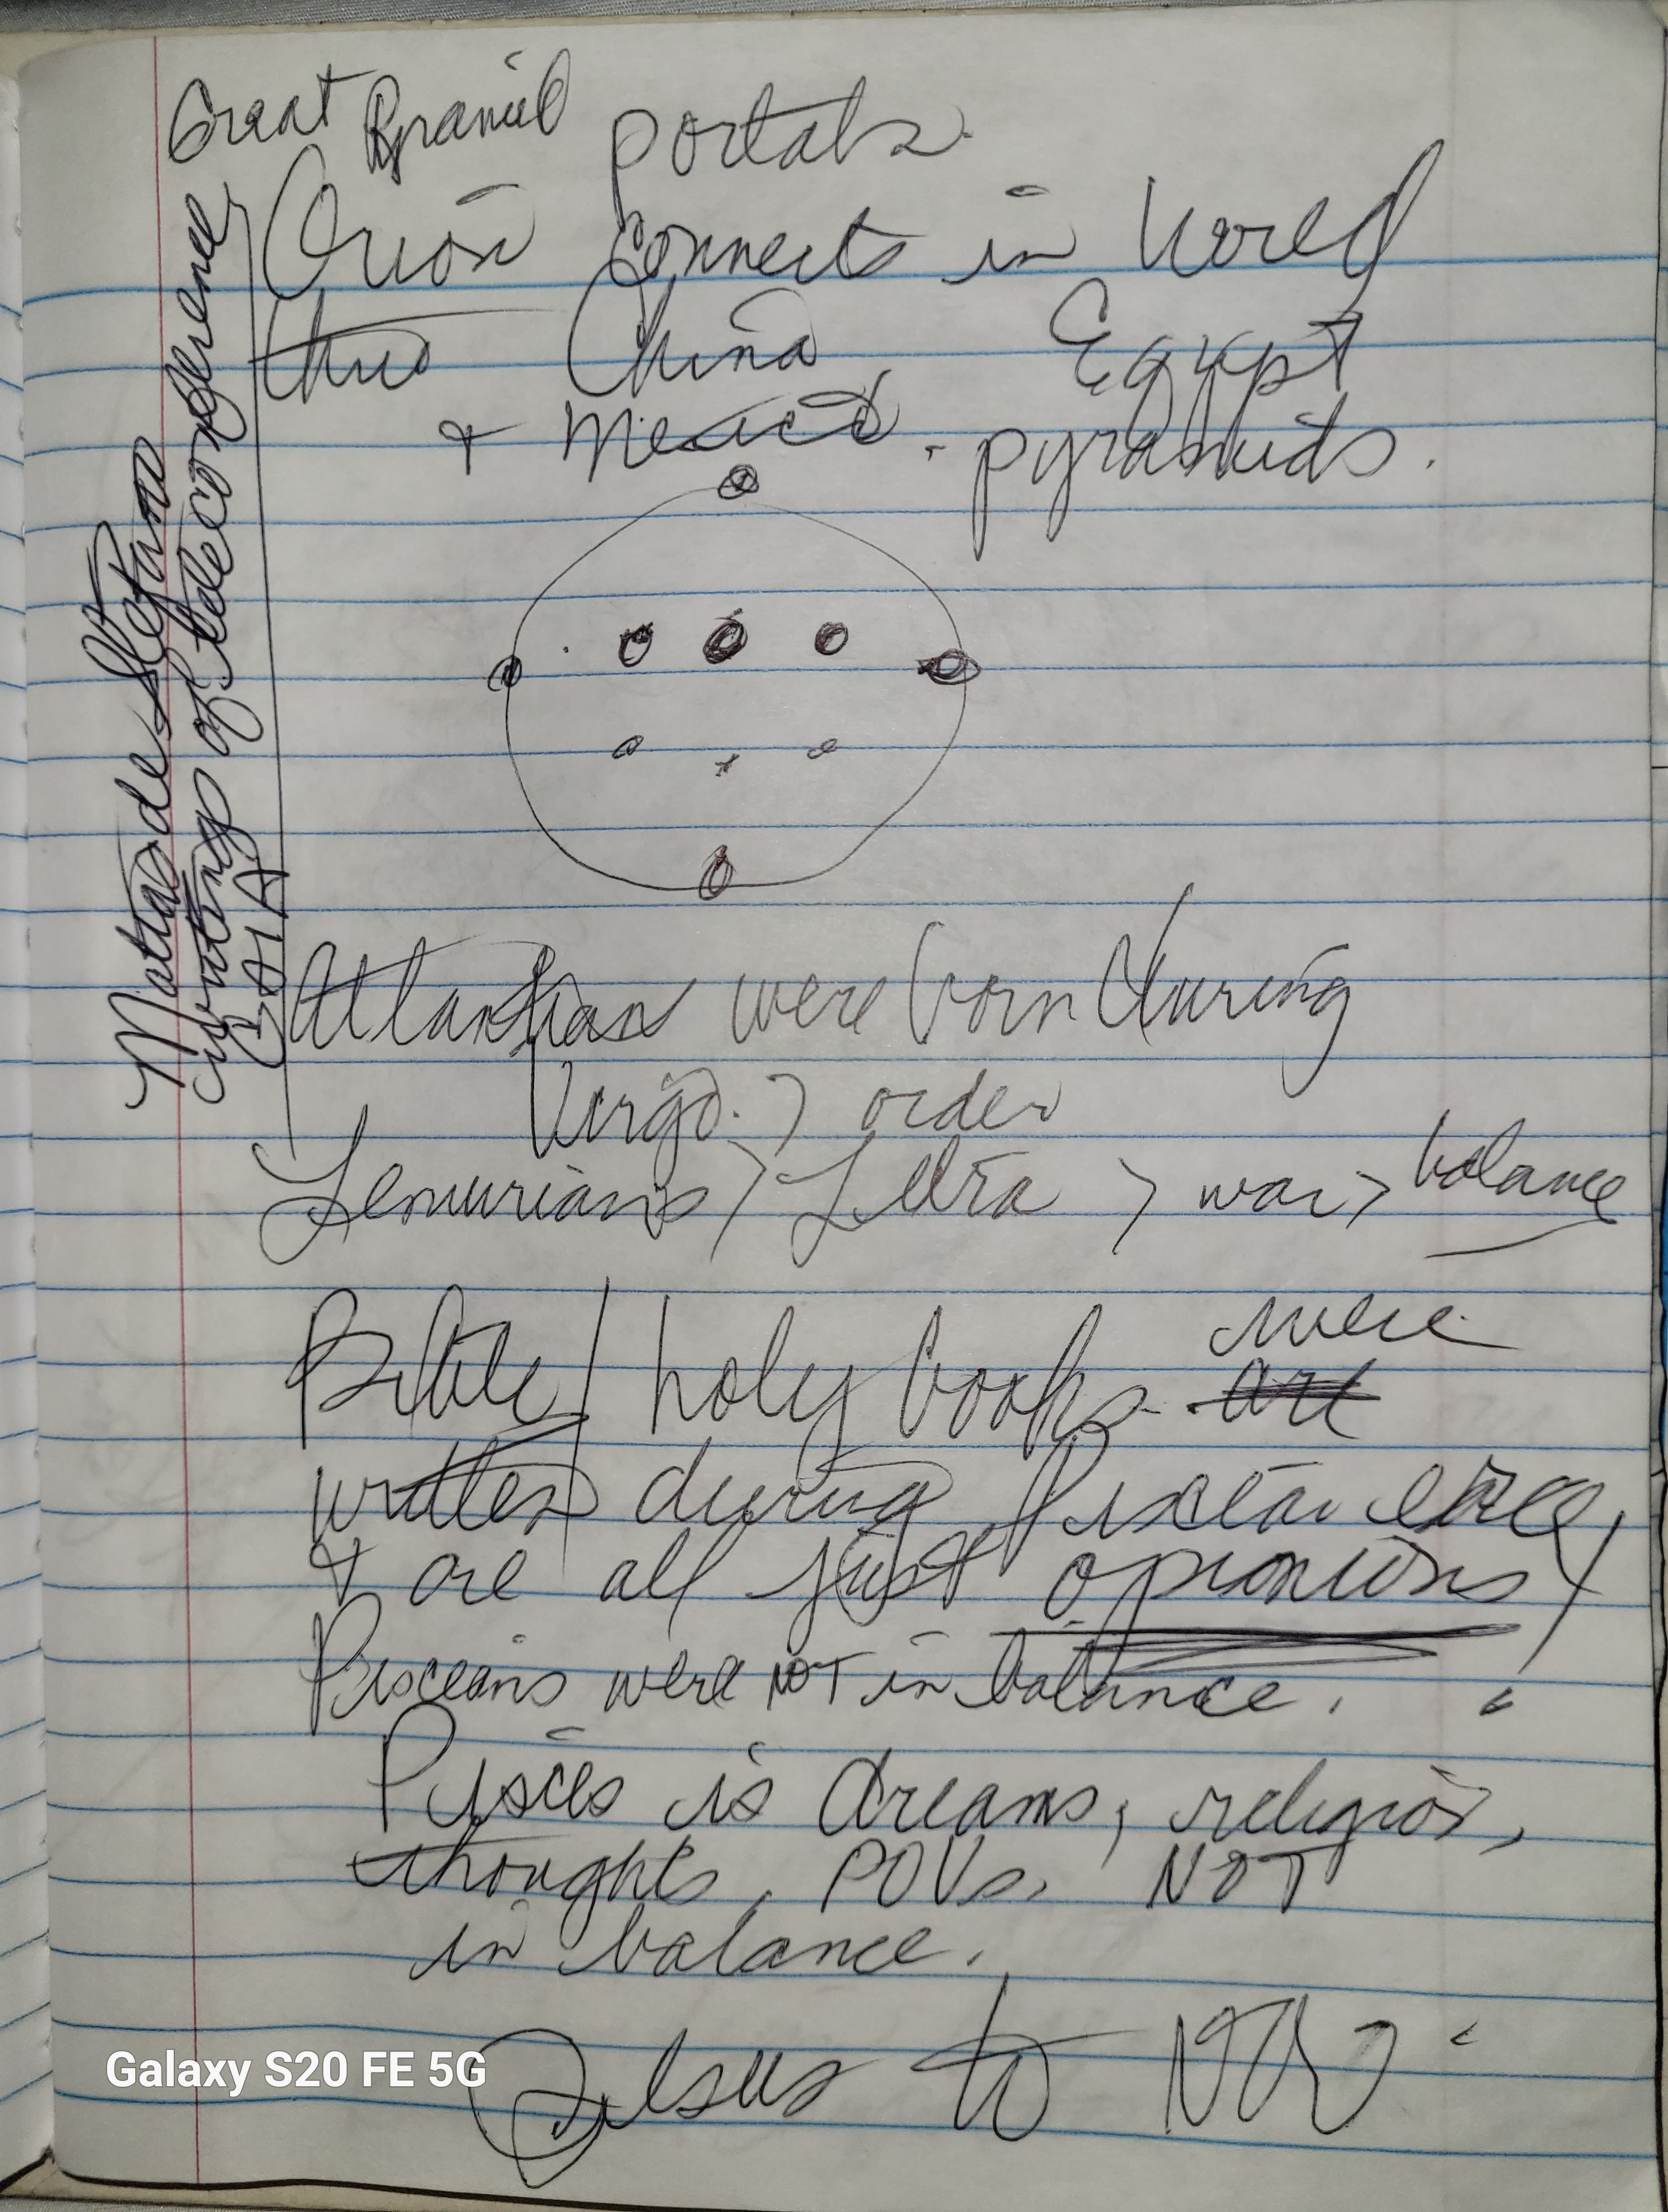 Great Pyramid portals.
Orion connects in World
thru China Egypt
& Mexico. pyramids.
Matias de Stefano
writings of late conference
GAIA
Atlantian were born during
Virgo. > order
Lemurians > Libra > war > balance
Bible / holy books were
are
written during Piscean
& are all just opionions!
Pisceans were NOT in balance.
Pisces is dreams, religion,
thoughts, POVs, NOT
in balance.
Jesus to NOW
Galaxy S20 FE 5G